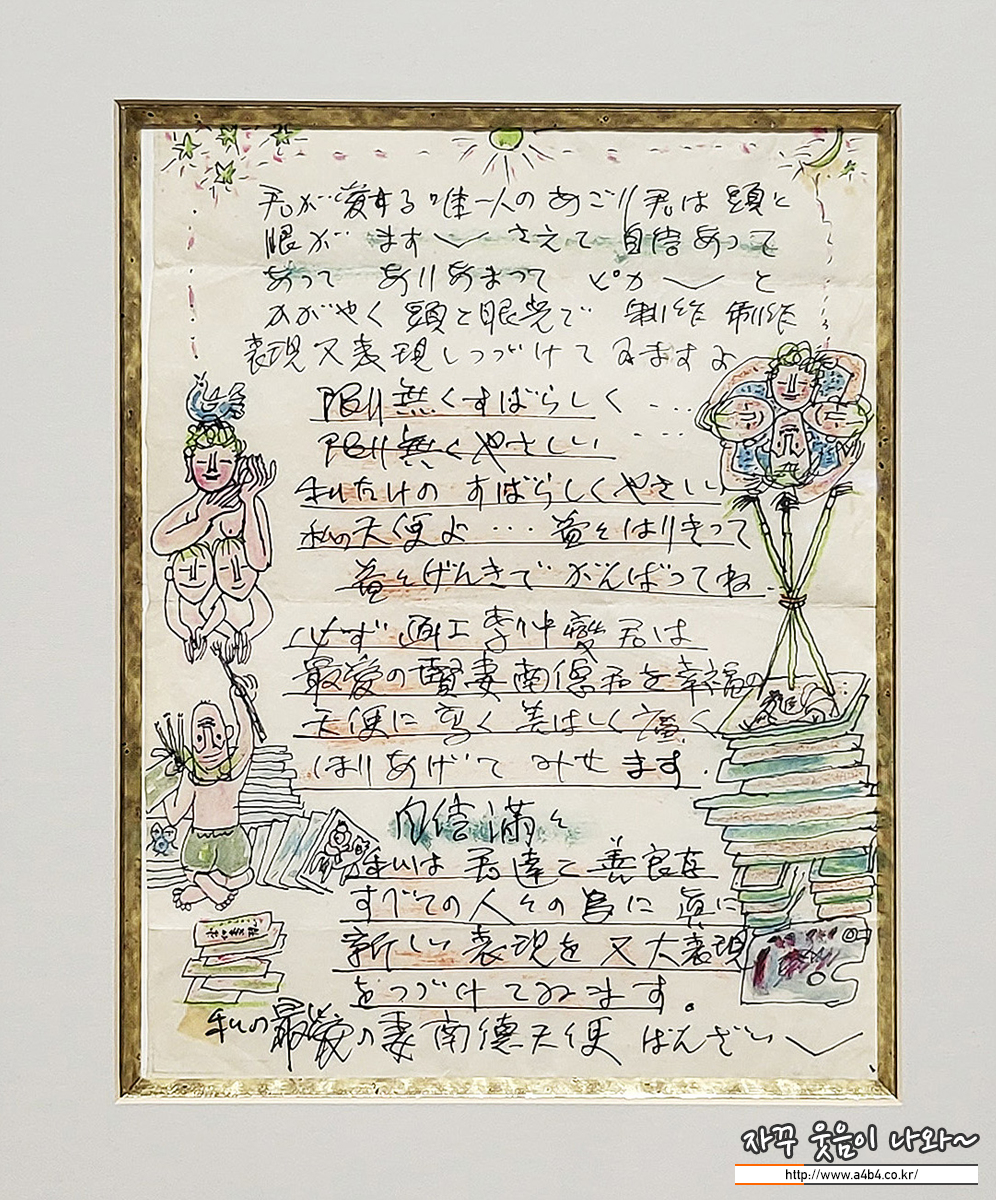 君が愛する唯一人のあごり君は頭と
眼が ます〱 さえて 自信あって
あって ありあまって ピカ〱 と
かがやく 頭と眼光で 制作 制作
表現又表現しつづけてゐますよ
限り無くすばらしく ・・・
限り無くやさしい ・・・
私だけの すばらしくやさしい
私の天使よ ・・・ 益々はりきって
益々げんきで がんばってね
必ず 画工 李仲燮君は
最愛の賢妻南德君を幸福の
天使に 高く 美はしく 広く
ほりあげて みせます.
自信満々
私は 君達と 善良な
すべての人々の為に 真に
新しい 表現を 又 大表現
をつづけてゐます。
私の最愛の妻南德天使 ばんざい〱
자꾸 웃음이 나와~
http://www.a4b4.co.kr/